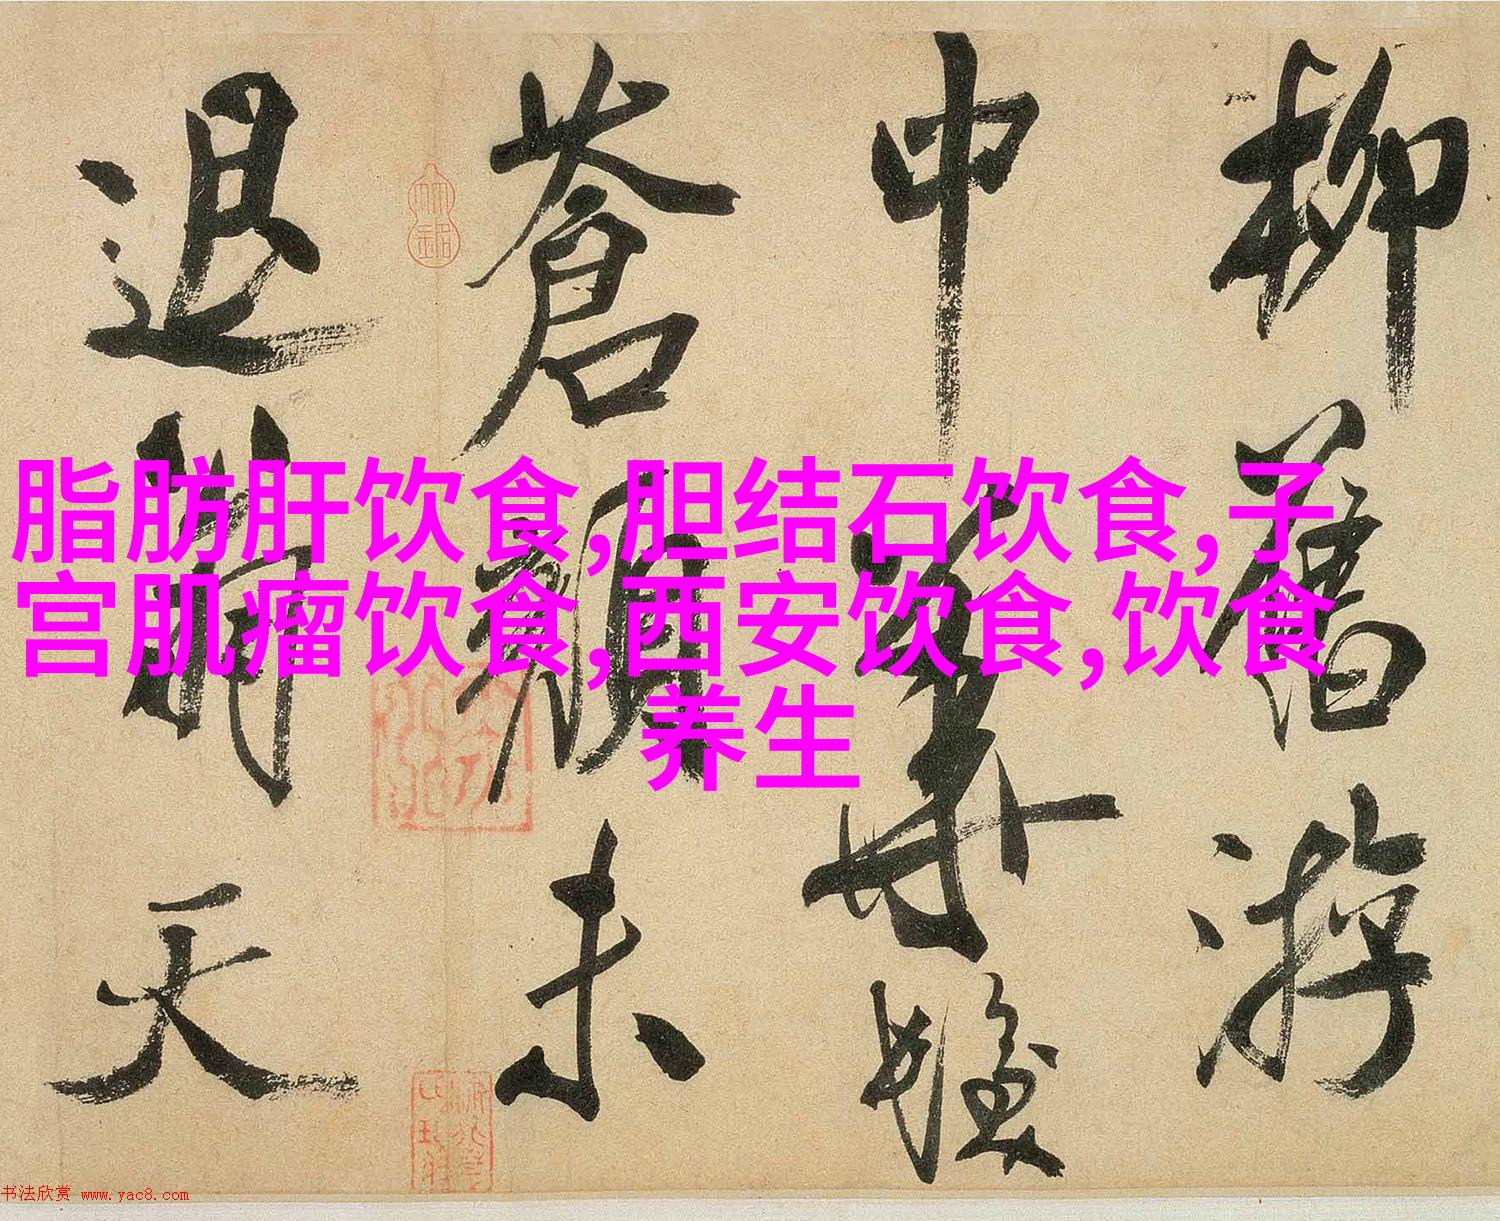 柳舊游
中華髮
蒼顏未
退翁天
脂肪肝饮食,胆结石饮食,子
宫肌瘤饮食,西安饮食,饮食
养生
书法欣赏 www.yac8.com